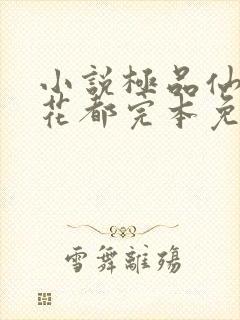 小說極品仙
花都完本免
雪舞離殤